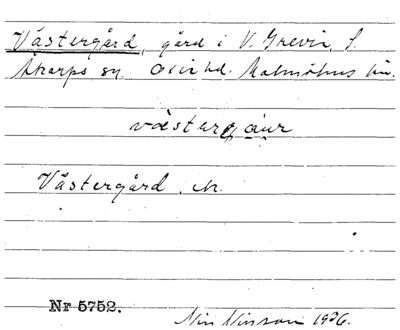 Västergård, gård i V. Grevie, S.
Åkarps sn Oxie hd. Malmöhus län.
västergáur
Västergård, N.
Nr 5752.
Nils Nilsson 1926.